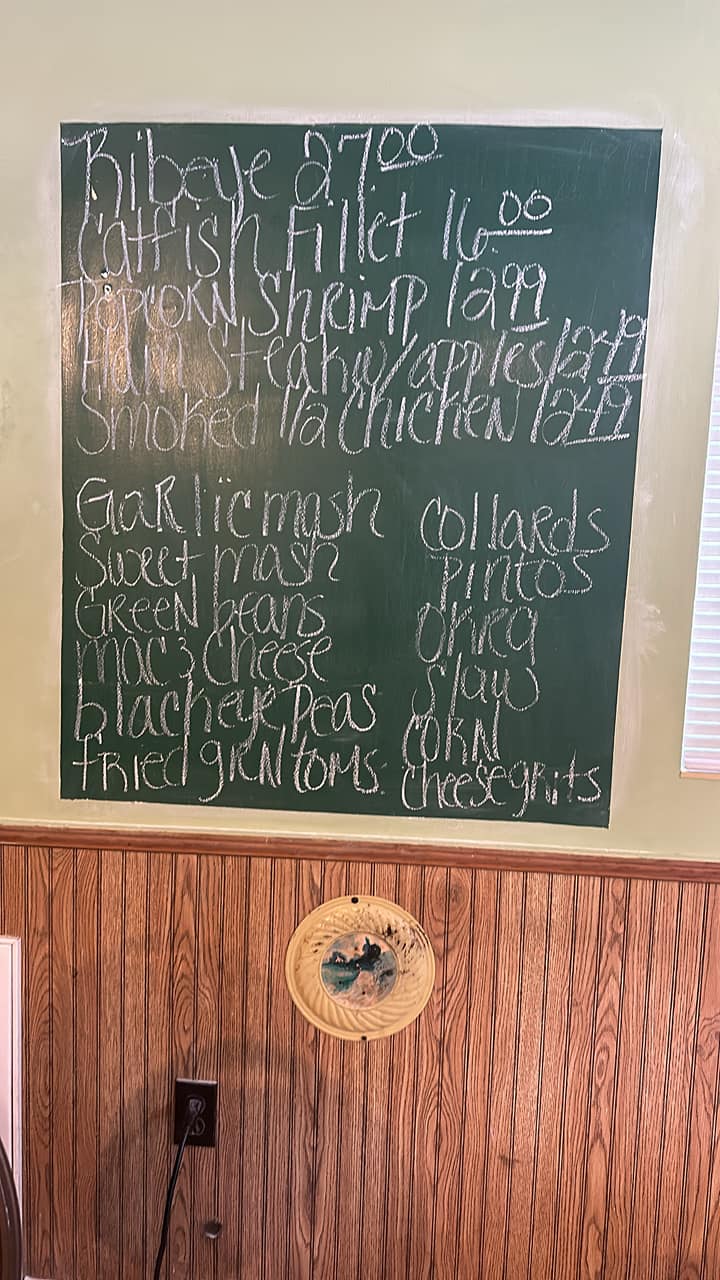 Ribeye 27.00
Catfish Fillet 16.00
Popcorn Shrimp 12 99
Ham Steak w/apples 12.49
Smoked 1/2 Chicken 12.49
Garlic mash
Sweet mash
Green beans
mac & Cheese
blackeye Peas
fried grn toms
Collards
Pintos
Okra
Slaw
Corn
Cheese grits